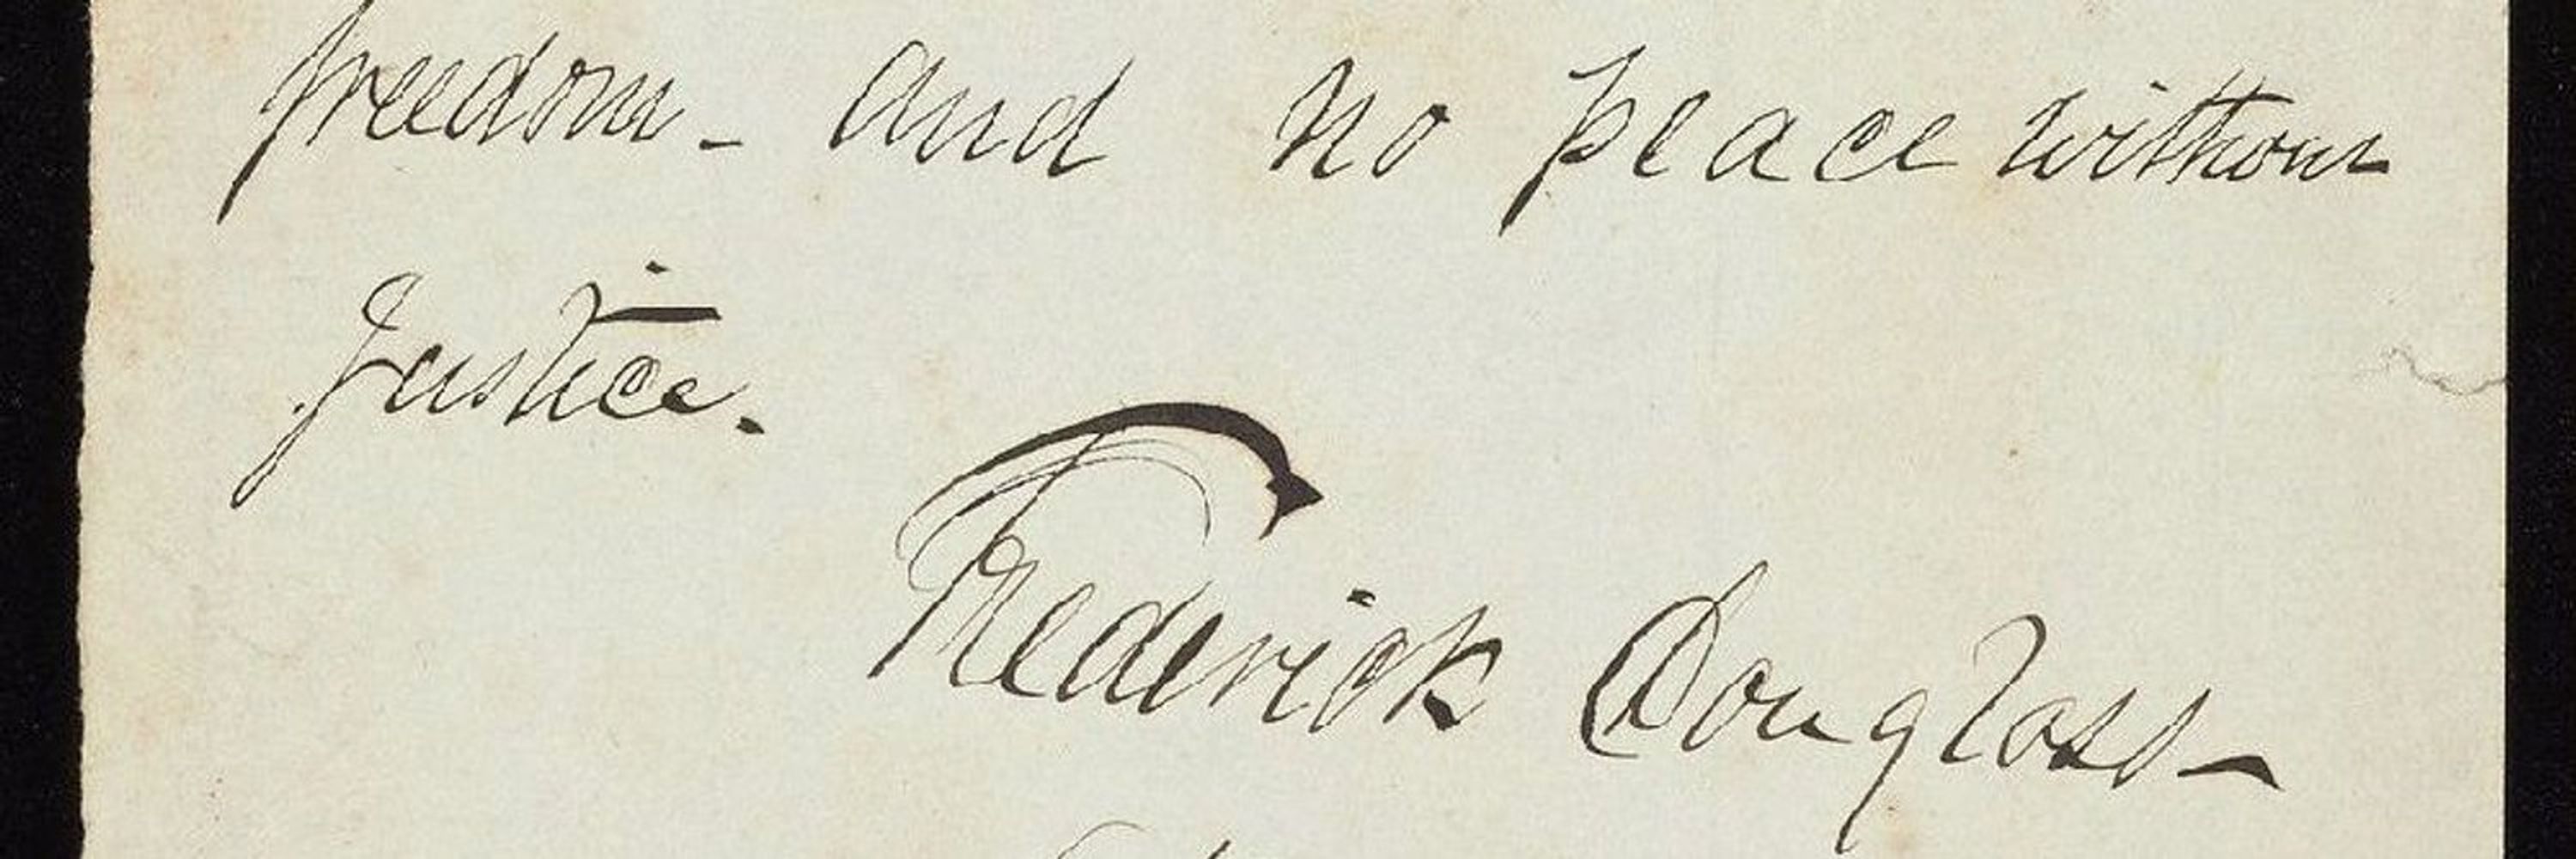 freedom - and no peace without
Justice.
Frederick Douglass